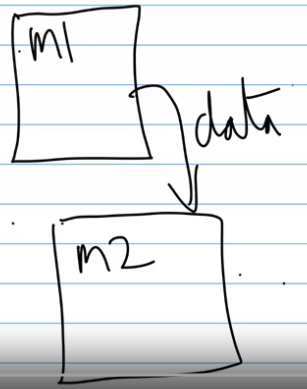 m1
data
m2